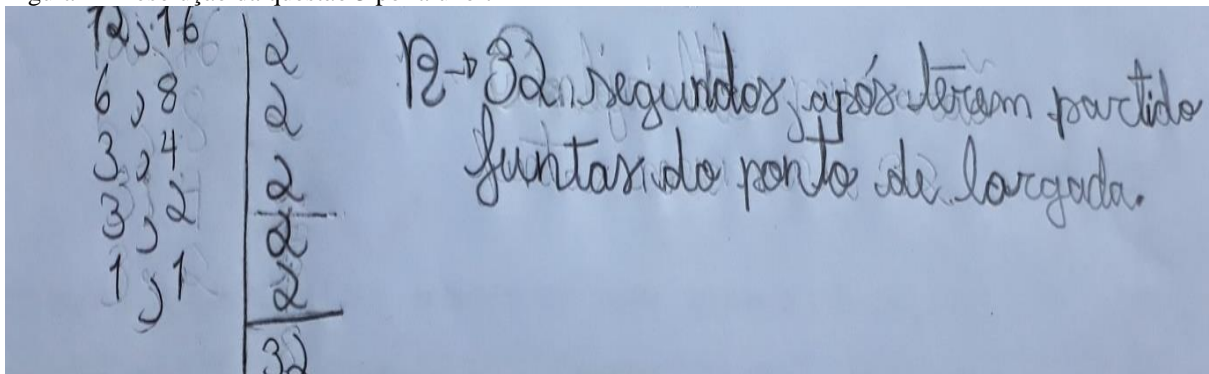 12,16 | 2
6,8 | 2
3,4 | 2
3,2 | 2
1,1 | 2
32
R→32 segundos, após terem partido
juntas do ponto de largada.